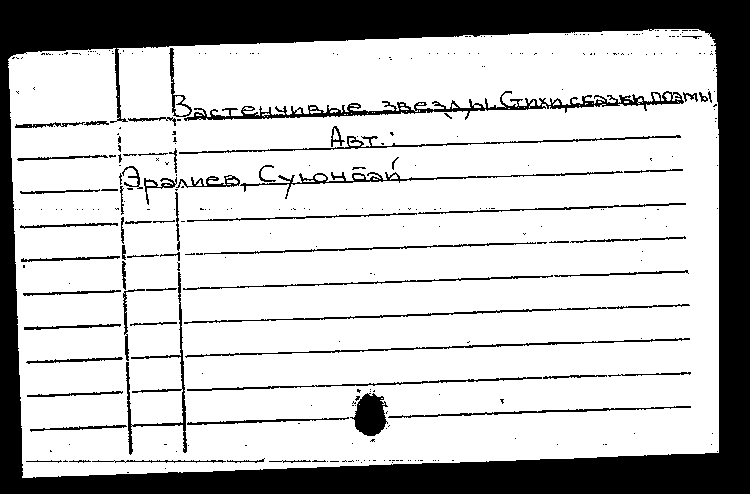 Застенчивые звезды. Стихи, сказки, поэмы.
Авт.:
Эралиев, Суюнбай.